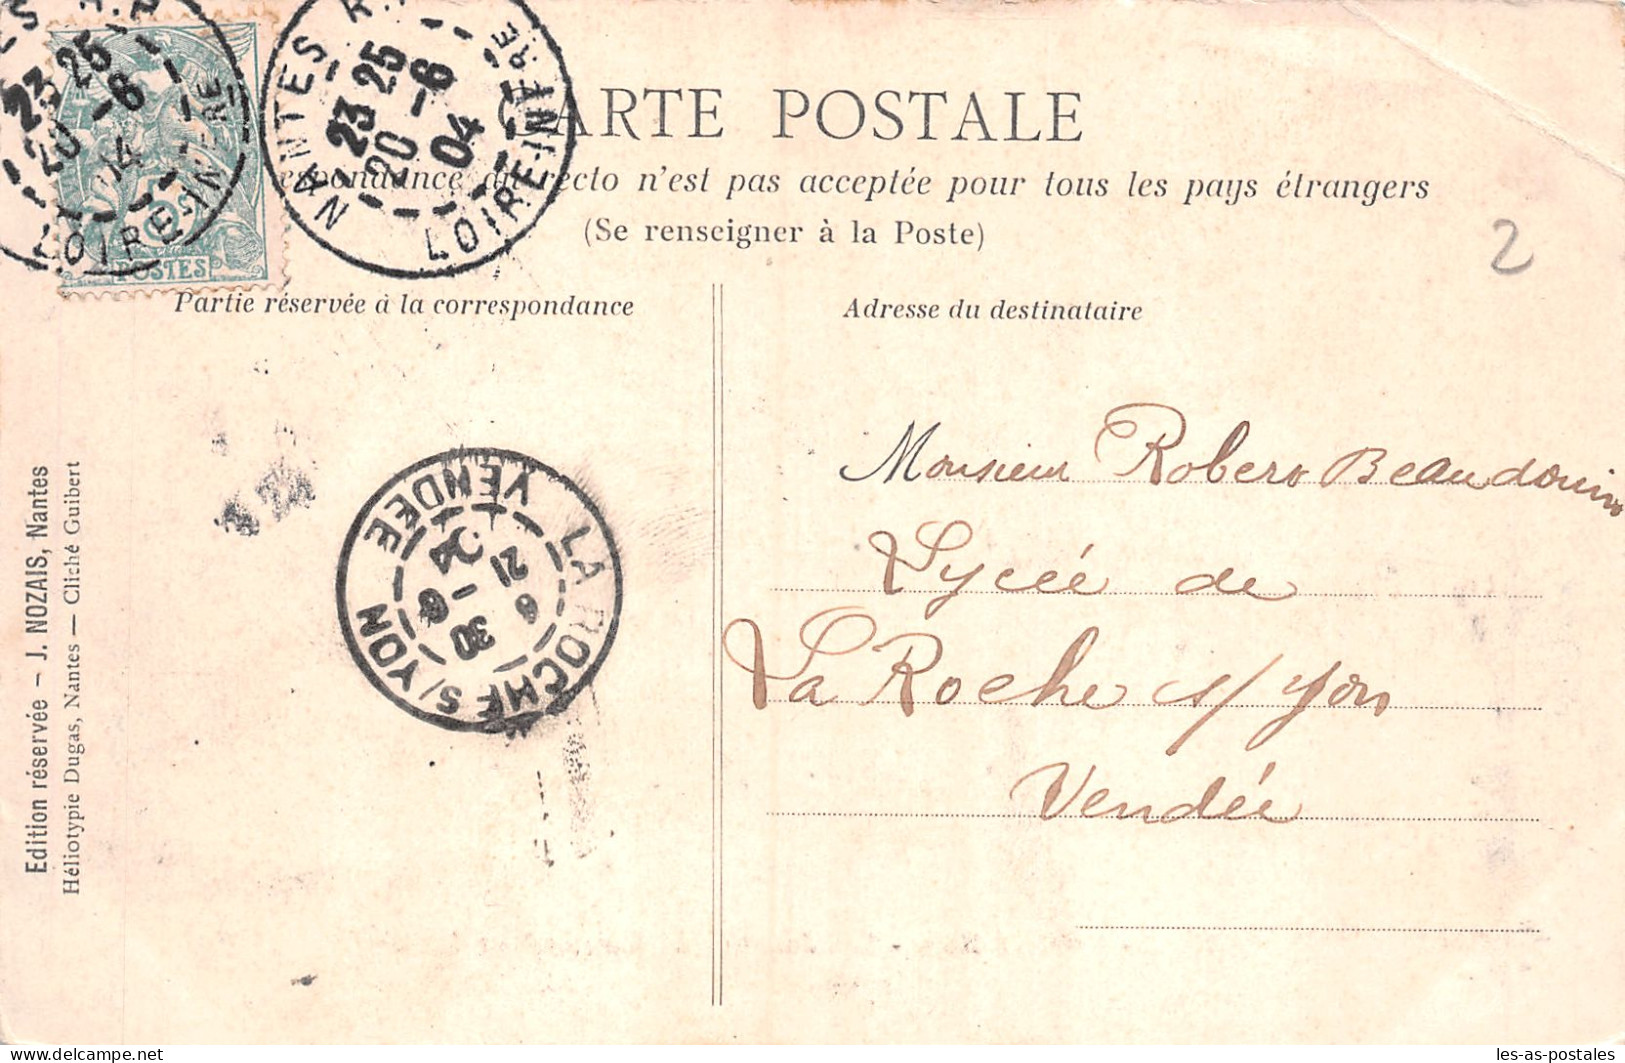 CARTE POSTALE
respondance au recto n'est pas acceptée pour tous les pays étrangers
(Se renseigner à la Poste)
2
Partie réservée à la correspondance
Adresse du destinataire
Monsieur Robert Beaudouin
Lycée de
La Roche s/ Yon
Vendée
Edition réservée - J. NOZAIS, Nantes
Héliotypie Dugas, Nantes — Cliché Guibert
NANTES R.
23 25
20 - 6
04
LOIRE-INFRE
23 25
20 - 6
04
LOIRE-INFRE
5
POSTES
LA ROCHE S/YON
VENDEE
21 6
04
30
delcampe.net
les-as-postales